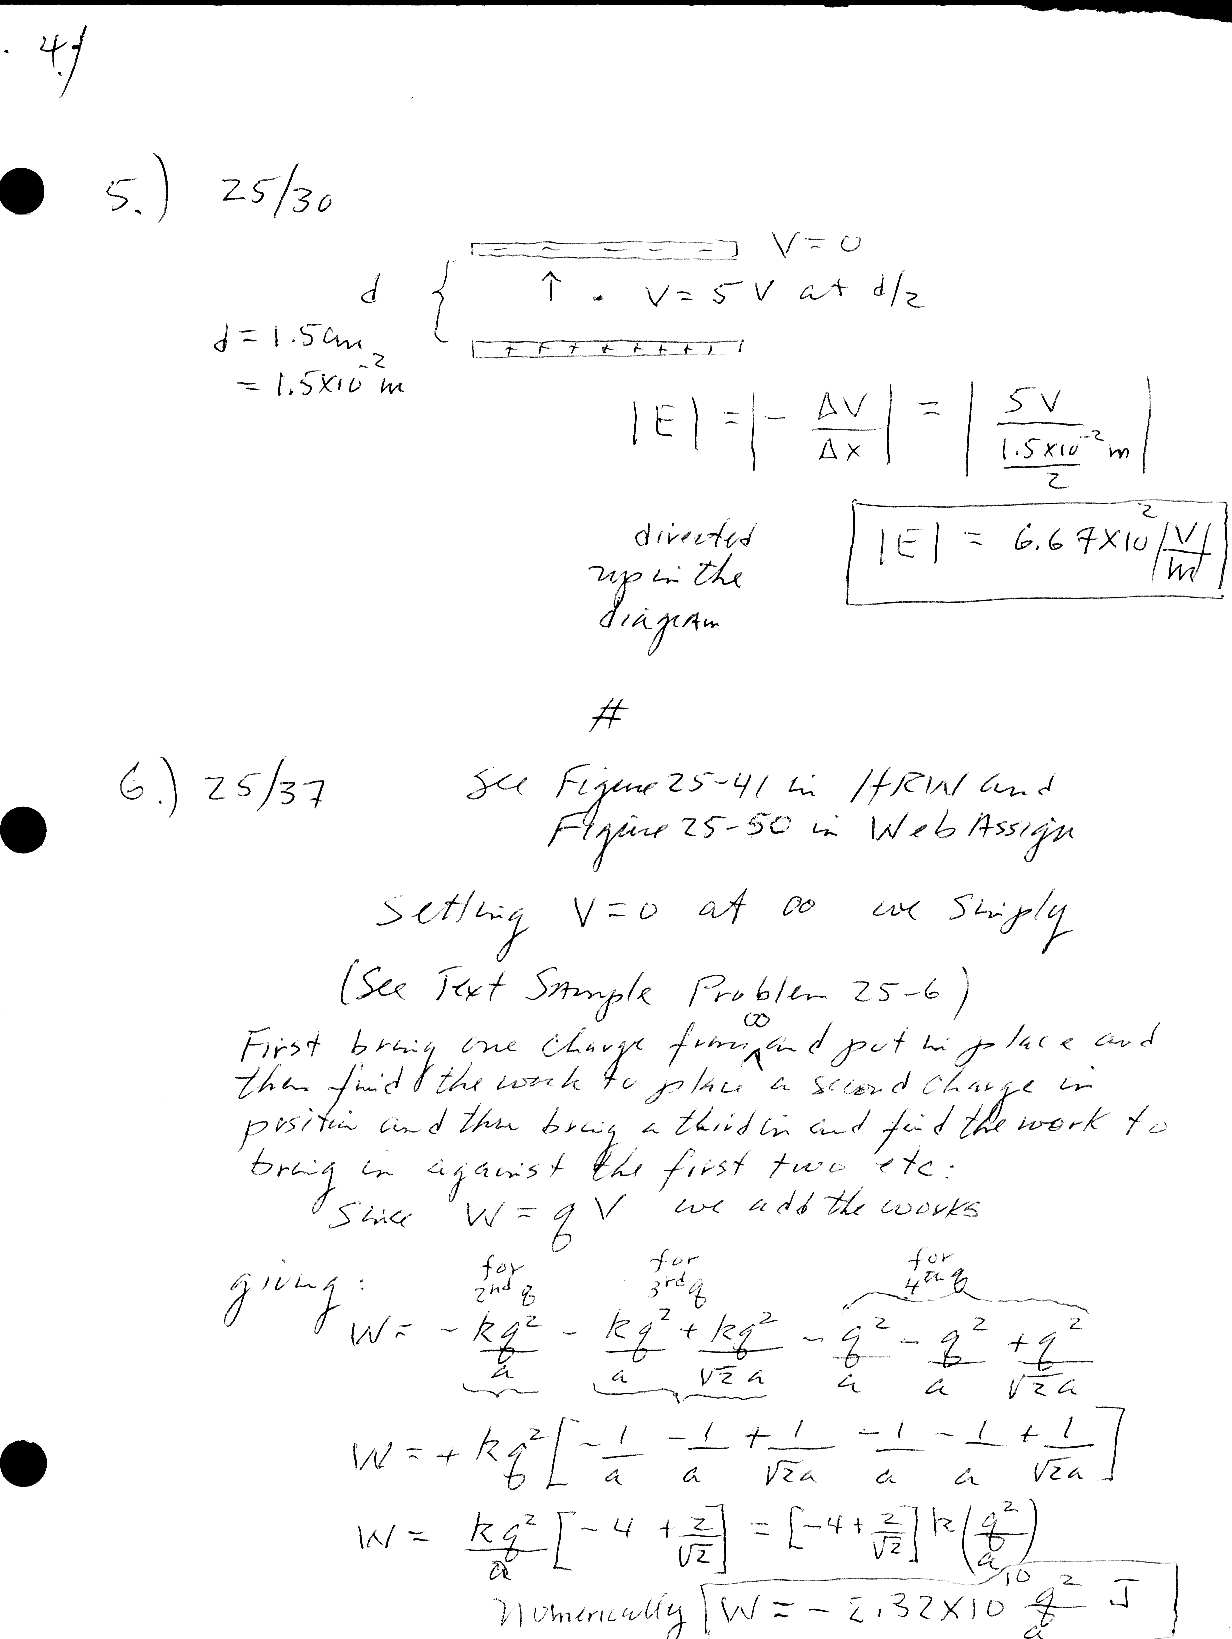 4.)
5.) 25/30
V = 0
d { ↑ . V = 5 V at d/2
d = 1.5 cm
+ + + + + + + + +
= 1.5×10⁻² m
|E| = |- ΔV/Δx| = |5V / (1.5×10⁻² m / 2)|
directed |E| = 6.67×10² V/m
up in the
diagram
#
6.) 25/37 See Figure 25-41 in HRW and
Figure 25-50 in WebAssign
Setting V=0 at ∞ we simply
(See Text Sample Problem 25-6)
First bring one charge from ∞ and put in place and
then find the work to place a second charge in
position and then bring a third in and find the work to
bring in against the first two etc.
Since W = qV we add the works
giving: for 2nd q for 3rd q for 4th q
W = - kq²/a - kq²/a + kq²/√2 a - q²/a - q²/a + q²/√2 a
W = + kq² [ -1/a - 1/a + 1/√2a - 1/a - 1/a + 1/√2a ]
W = kq²/a [ -4 + 2/√2 ] = [ -4 + 2/√2 ] k (q²/a)
Numerically W = - 2.32×10¹⁰ q²/a J